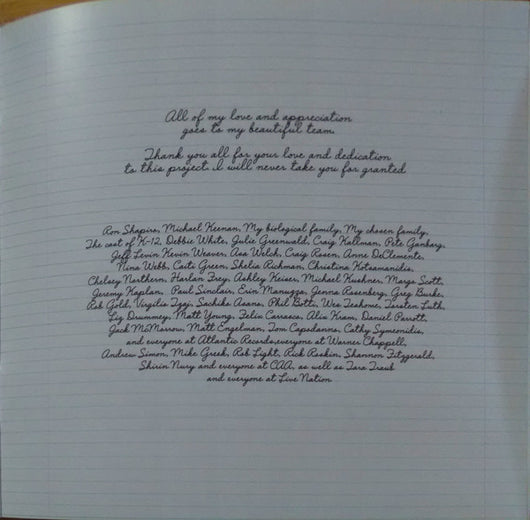 All of my love and appreciation
goes to my beautiful team.
Thank you all for your love and dedication
to this project. I will never take you for granted
Ron Shapiro, Michael Keenan, My biological family, My chosen family,
The cast of K-12, Debbie White, Julie Greenwald, Craig Kallman, Pete Ganbarg,
Jeff Levin Kevin Weaver, Asa Welch, Craig Rosen, Anne DeClemente,
Nina Webb, Caiti Green, Shelia Richman, Christina Kotsamanidis,
Chelsey Northern, Harlan Frey, Ashley Keiser, Michael Kushner, Margo Scott,
Jeremy Kaplan, Paul Sinclair, Erin Manuzza, Jenna Rosenberg, Greg Burke,
Rob Gold, Virgilio Tzaj, Sachiko Asano, Phil Botti, Wes Teshome, Torsten Luth,
Liz Drummey, Matt Young, Felix Carrasco, Alix Kram, Daniel Parrott,
Jack McMorrow, Matt Engelman, Tom Capodanno, Cathy Symeonidis,
and everyone at Atlantic Records,everyone at Warner Chappell,
Andrew Simon, Mike Greek, Rob Light, Rick Roskin, Shannon Fitzgerald,
Shirin Nury and everyone at CAA, as well as Tara Traub
and everyone at Live Nation